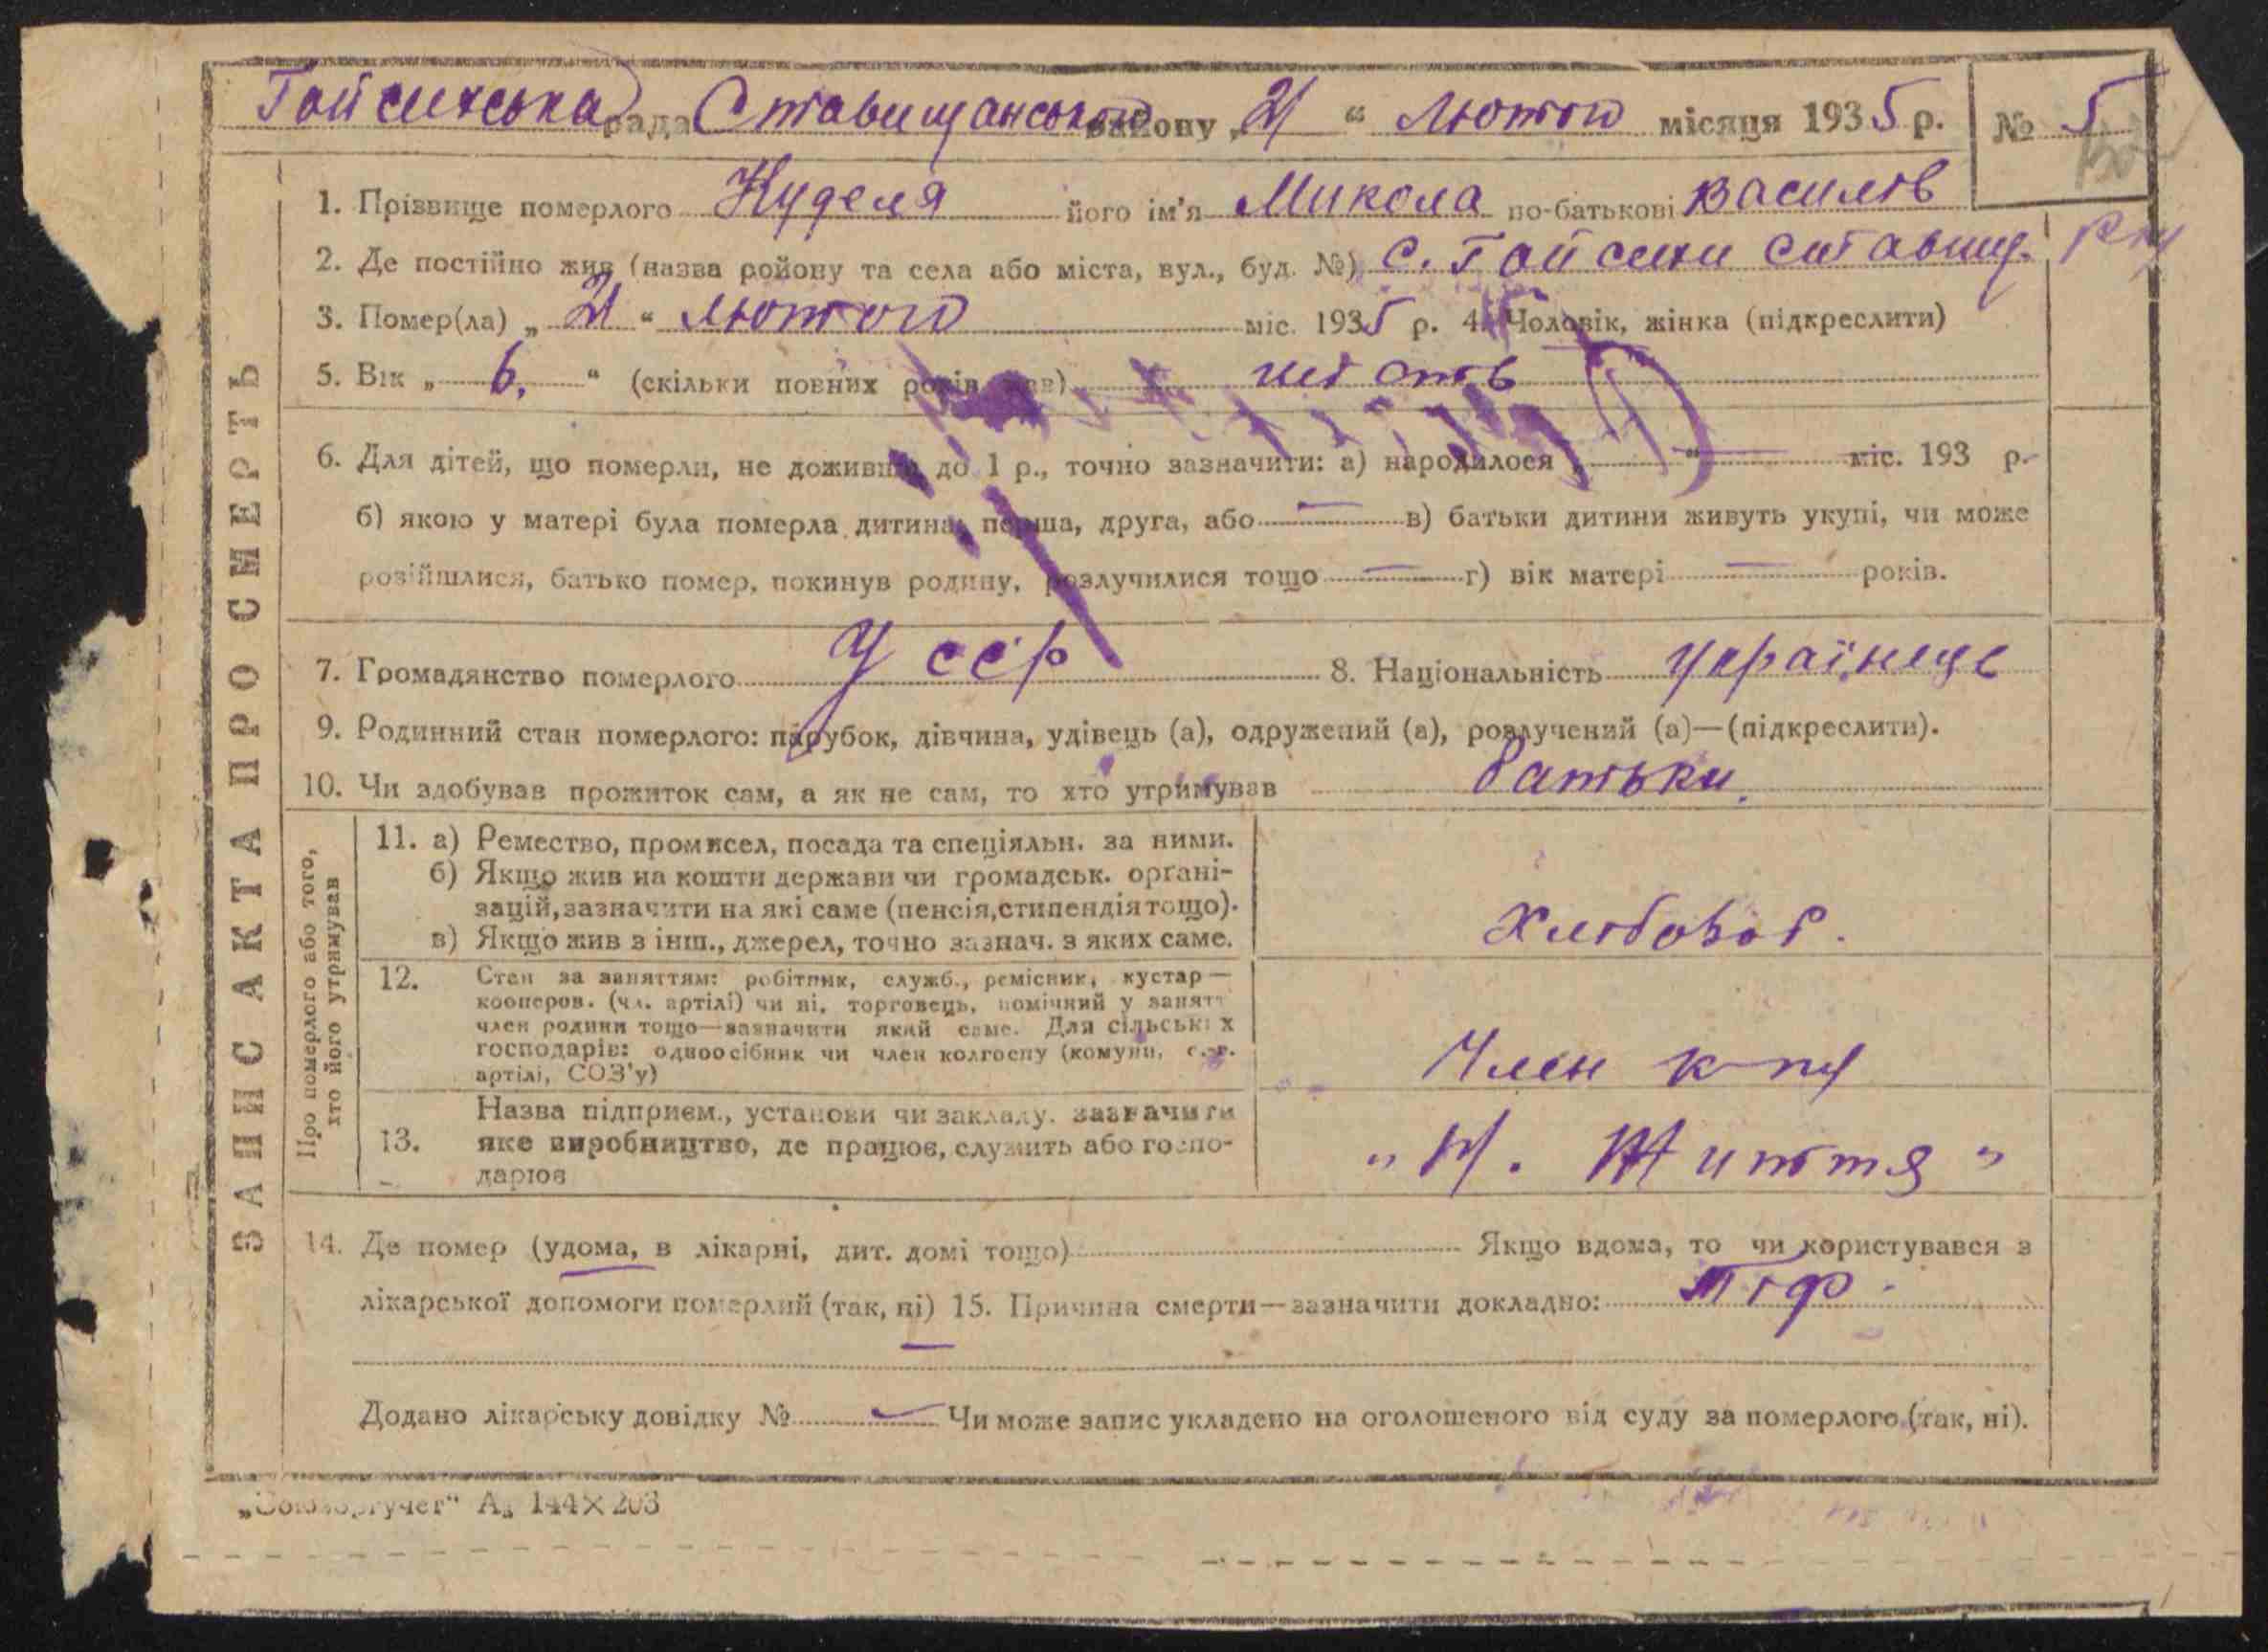 Гайсинська рада Ставищанського району „21“ Лютого місяця 1935 р. № 5
1. Прізвище померлого Куделя його ім'я Микола по-батькові Василів
2. Де постійно жив (назва району та села або міста, вул., буд. №) с. Гайсини Ставищ. р-ну
3. Помер(ла) „21“ Лютого міс. 1935 р. 4. Чоловік, жінка (підкреслити)
5. Вік „6.“ (скільки повних років мав) шість
6. Для дітей, що померли, не доживши до 1 р., точно зазначити: а) народилося „—“ — міс. 193 р.
б) якою у матері була померла дитина: перша, друга, або — в) батьки дитини живуть укупі, чи може
розійшлися, батько помер, покинув родину, розлучилися тощо — г) вік матері — років.
7. Громадянство померлого УССР 8. Національність українець
9. Родинний стан померлого: парубок, дівчина, удівець (а), одружений (а), розлучений (а)—(підкреслити).
10. Чи здобував прожиток сам, а як не сам, то хто утримував батьки.
ЗАПИС АКТА ПРО СМЕРТЬ
Про померлого або того,
хто його утримував
11. а) Ремество, промисел, посада та спеціяльн. за ними.
б) Якщо жив на кошти держави чи громадськ. органі-
зацій, зазначити на які саме (пенсія, стипендія тощо).
в) Якщо жив з інш., джерел, точно зазнач. з яких саме.
Хлібороб.
12. Стан за заняттям: робітник, служб., ремісник, кустар —
кооперов. (чл. артілі) чи ні, торговець, помічний у занятт
член родини тощо—зазначити який саме. Для сільських
господарів: одноосібник чи член колгоспу (комуни, с.-г.
артілі, СОЗ'у)
Член к-пу
13. Назва підприєм., установи чи закладу. зазначити
яке виробництво, де працює, служить або госпо-
дарює
„Н. Життя“
14. Де помер (удома, в лікарні, дит. домі тощо) Якщо вдома, то чи користувався з
лікарської допомоги померлий (так, ні) 15. Причина смерти—зазначити докладно: Тіф.
Додано лікарську довідку № — Чи може запис укладено на оголошеного від суду за померлого (так, ні).
„Союзоргучет“ А₅ 144×203